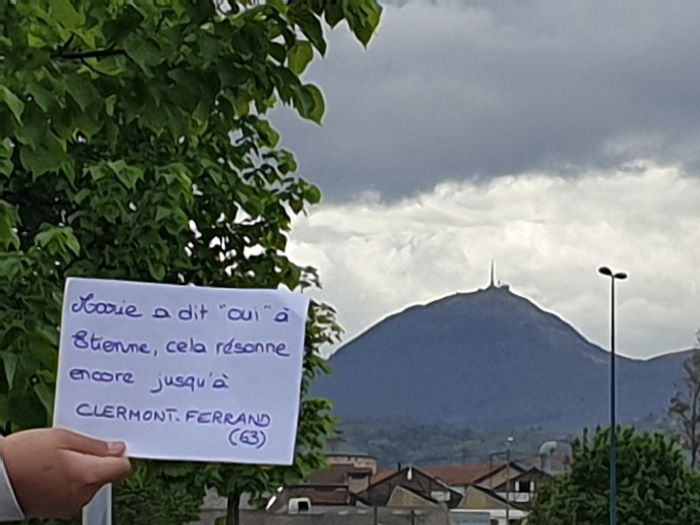 Marie a dit "oui" à
Etienne, cela résonne
encore jusqu'à
CLERMONT-FERRAND
(63)